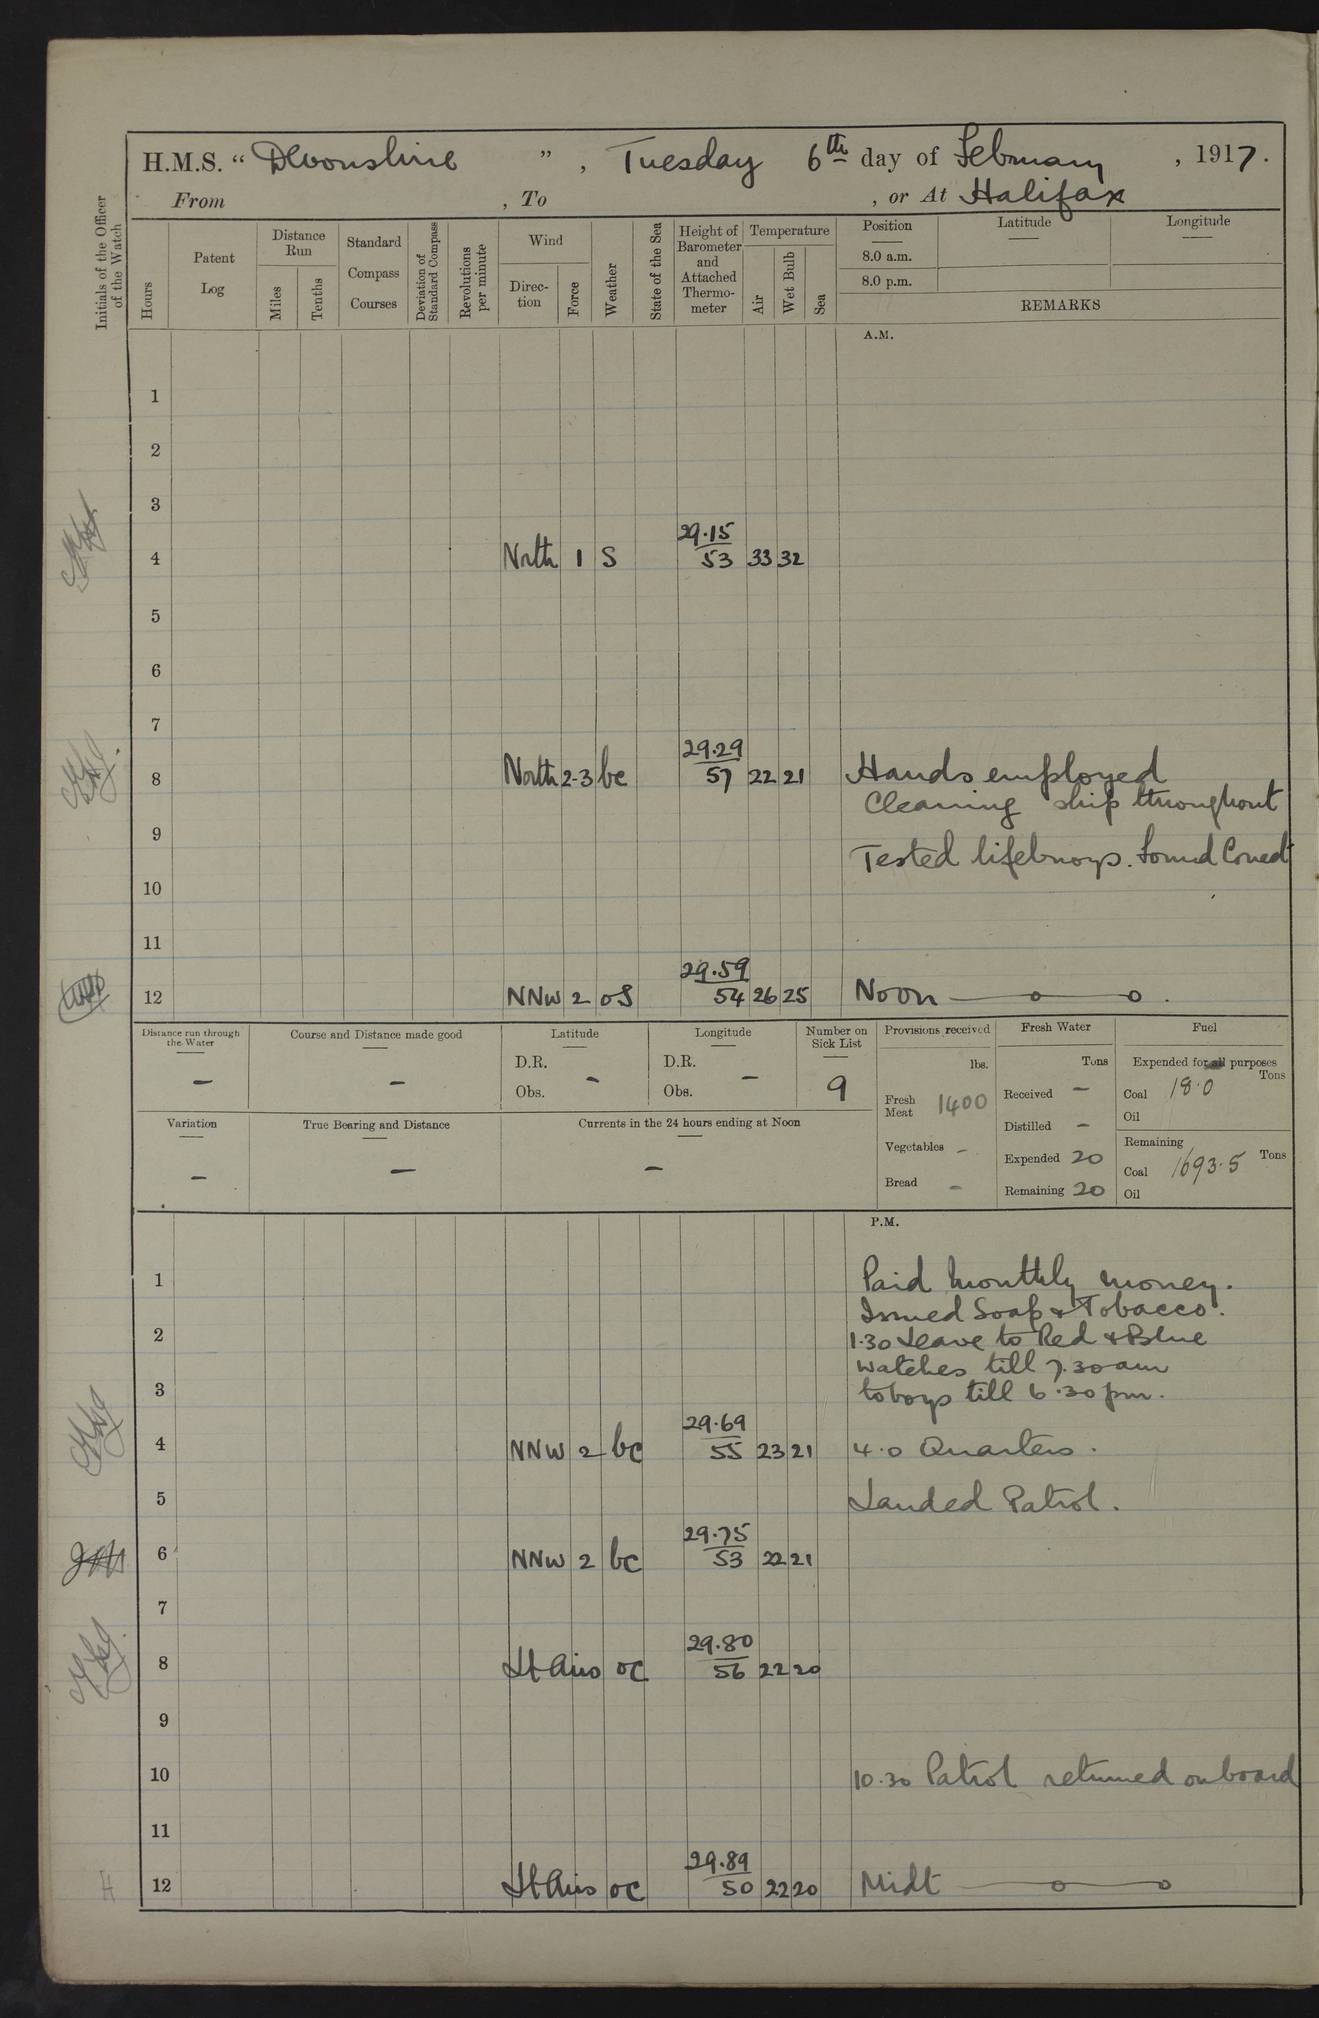 H.M.S. “ Devonshire ” , Tuesday 6th day of February , 1917.
From , To , or At Halifax
Initials of the Officer of the Watch
Hours
Patent Log
Distance Run
Miles
Tenths
Standard Compass Courses
Deviation of Standard Compass
Revolutions per minute
Wind
Direc-tion
Force
Weather
State of the Sea
Height of Barometer and Attached Thermo-meter
Temperature
Air
Wet Bulb
Sea
Position Latitude Longitude
8.0 a.m.
8.0 p.m.
REMARKS
A.M.
1
2
3
29.15
4 North 1 S 53 33 32
5
6
7
29.29
8 North 2-3 bc 57 22 21 Hands employed
Cleaning ship throughout
9
Tested lifebuoys. found Correct
10
11
29.59
12 NNW 2 oS 54 26 25 Noon
Distance run through the Water
—
Course and Distance made good
—
Latitude
D.R.
Obs. -
Longitude
D.R.
Obs. -
Number on Sick List
9
Provisions received
lbs.
Fresh Meat 1400
Vegetables -
Bread -
Fresh Water
Tons
Received -
Distilled -
Expended 20
Remaining 20
Fuel
Expended for all purposes
Tons
Coal 18.0
Oil
Remaining
Coal 1693.5 Tons
Oil
Variation
—
True Bearing and Distance
—
Currents in the 24 hours ending at Noon
—
P.M.
1 Paid monthly money.
Issued Soap & Tobacco.
2 1.30 Leave to Red & Blue
watches till 7.30 am
3 to boys till 6.30 pm.
29.69
4 NNW 2 bc 55 23 21 4.0 Quarters.
5 Landed Patrol.
29.75
6 NNW 2 bc 53 22 21
7
29.80
8 Lt Airs oc 56 22 20
9
10 10.30 Patrol returned onboard
11
29.89
12 Lt Airs oc 50 22 20 Midt